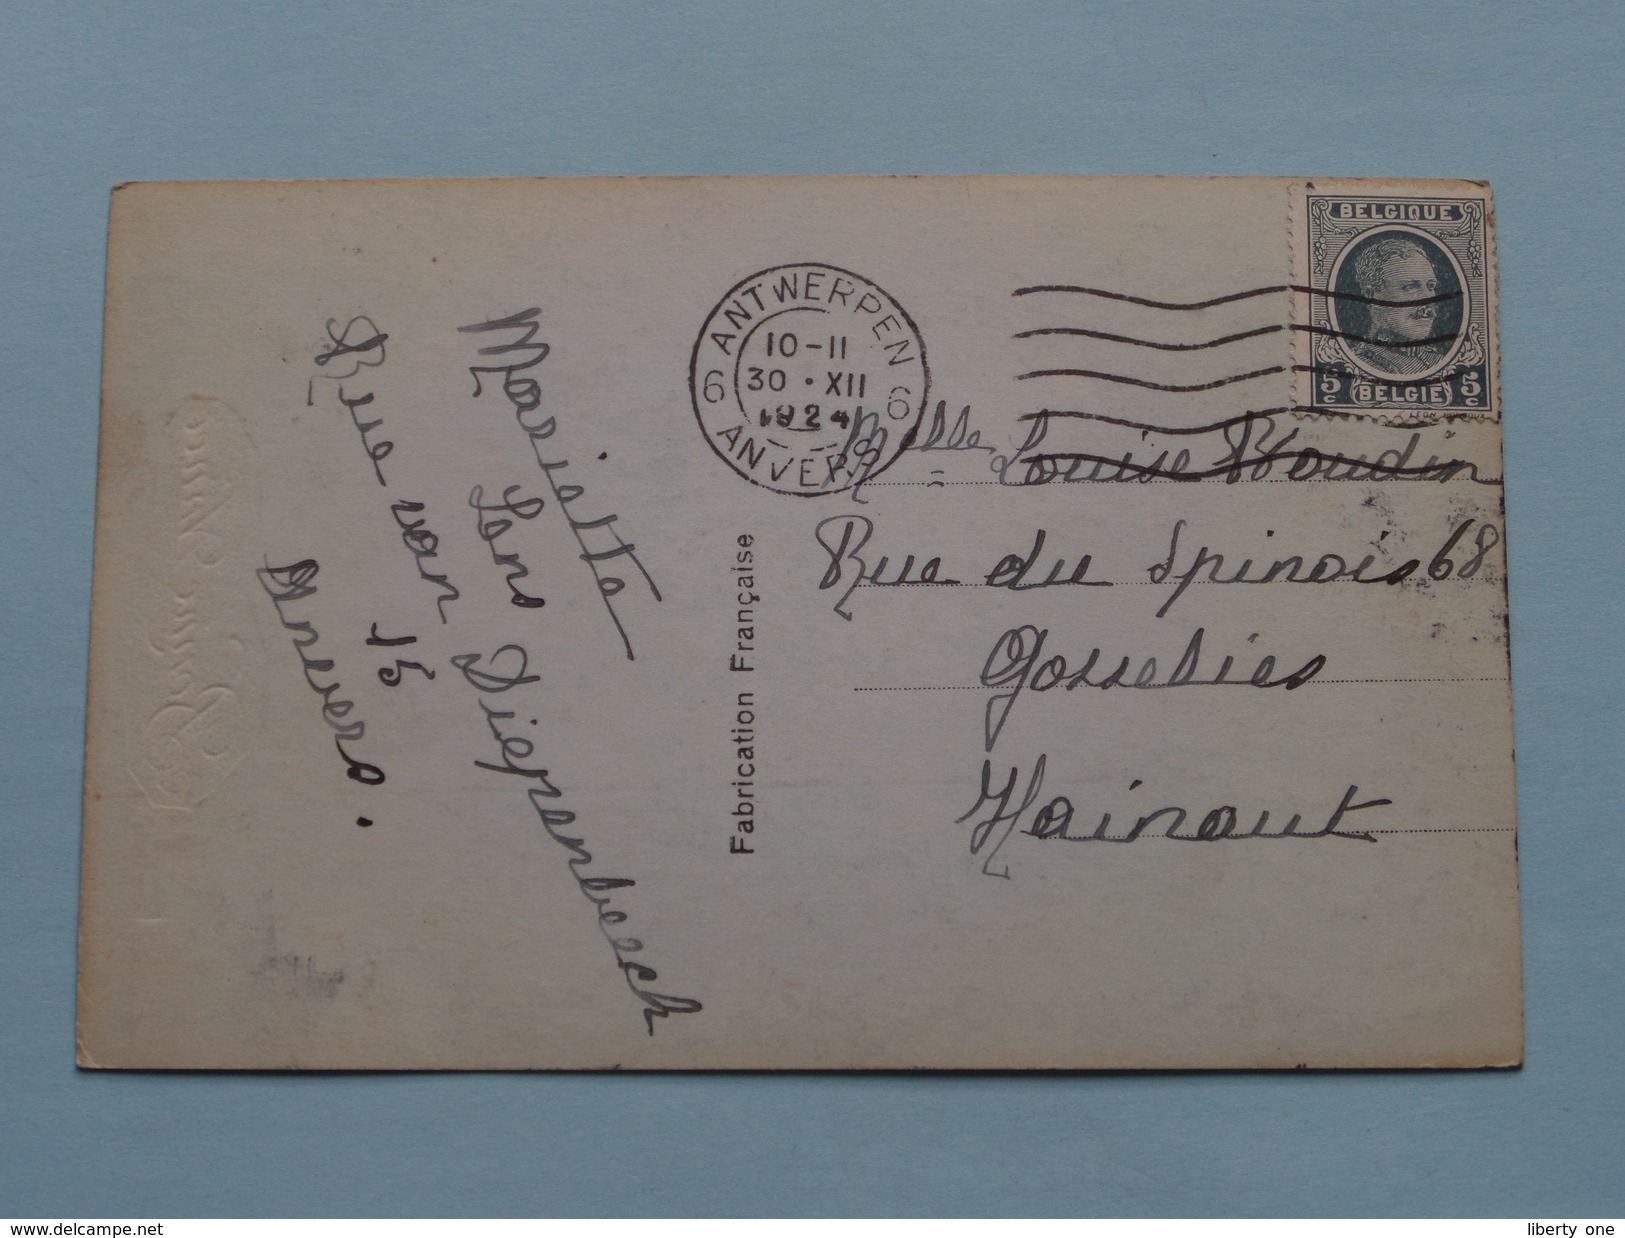 Mariette
Lens
Rue van Diepenbeeck
15
Anvers.
Bonne Année
Fabrication Française
ANTWERPEN
10-11
30 • XII
1924
6 6
ANVERS
BELGIQUE
5c 5c
BELGIË
Melle Louise
Rue du Spinois 68
Gosselies
Hainaut
www.delcampe.net
liberty one